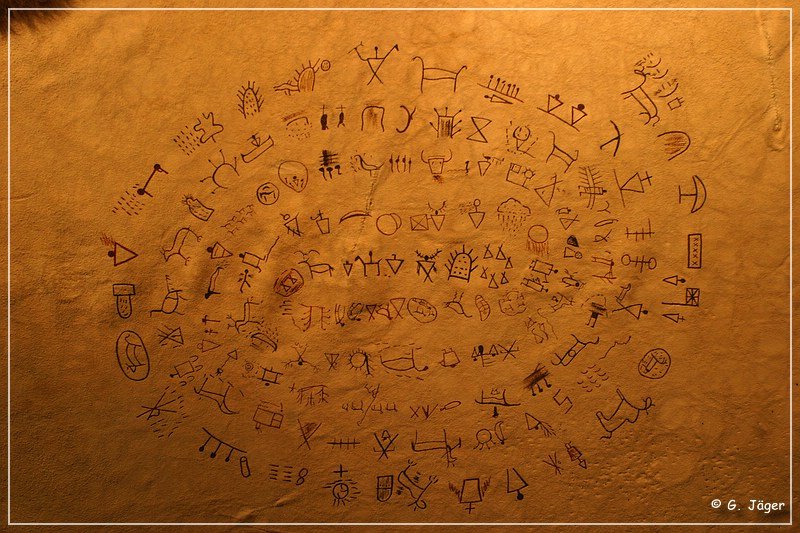 © G. Jäger